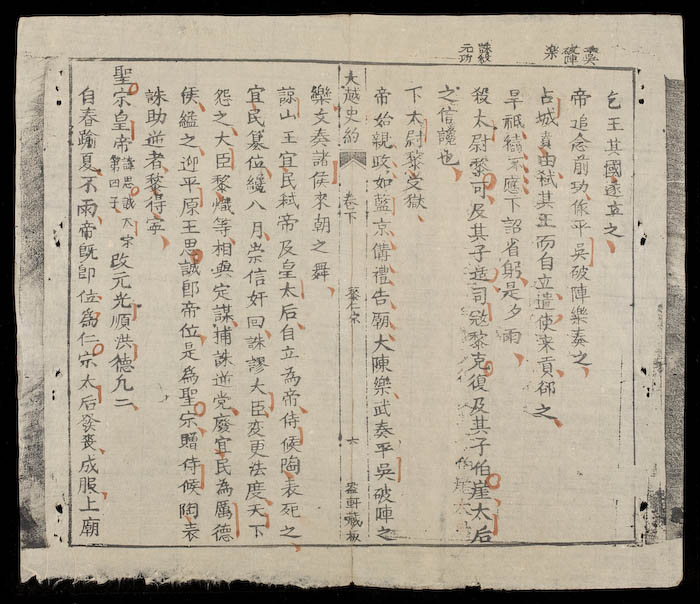 乞王其國遂立之
帝追念前功作平吳破陣樂奏之
占城賁由弑其王而自立遣使來貢卻之
旱祇禱不應下詔省躬是夕雨
殺太尉黎可及其子造司寇黎克復及其子伯崖太后
之信讒也
下太尉黎受獄
帝始親政如藍京備禮告廟大陳樂武奏平吳破陣之
大越史約
卷下
黎仁宗
六
樂文奏諸侯來朝之舞
諒山王宜民弑帝及皇太后自立為帝侍候陶表死之
宜民篡位纔八月崇信奸回誅謬大臣変更法度天下
怨之大臣黎熾等相與定謀捕誅逆党廢宜民為厲德
侯縊之迎平原王思誠即帝位是為聖宗贈侍候陶表
誅助逆者黎得寧
聖宗皇帝
諱思誠太宗
第四子
改元光順洪德凢二
自春踰夏不雨帝既即位為仁宗太后發喪成服上廟
平吳
破陣
樂